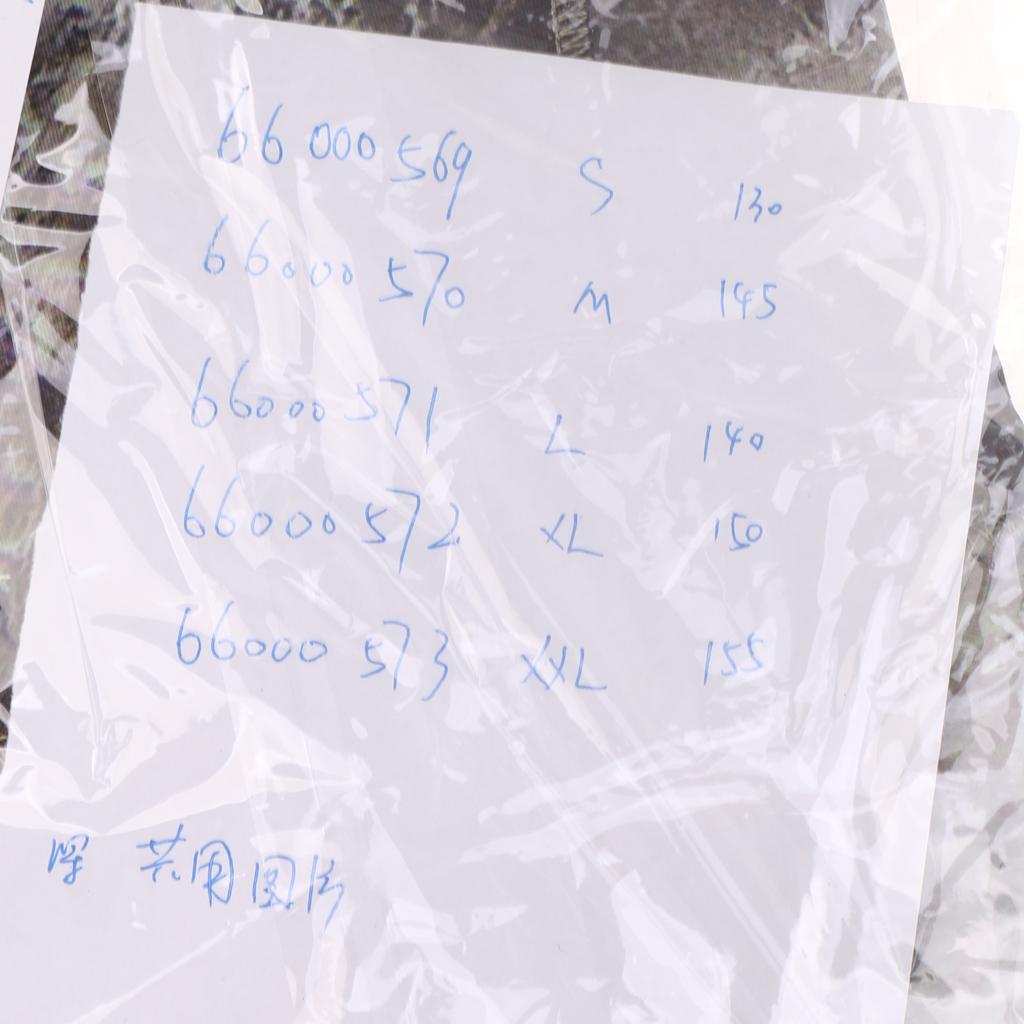 66000569 S 130
66000570 M 145
66000571 L 140
66000572 XL 150
66000573 XXL 155
共用图片